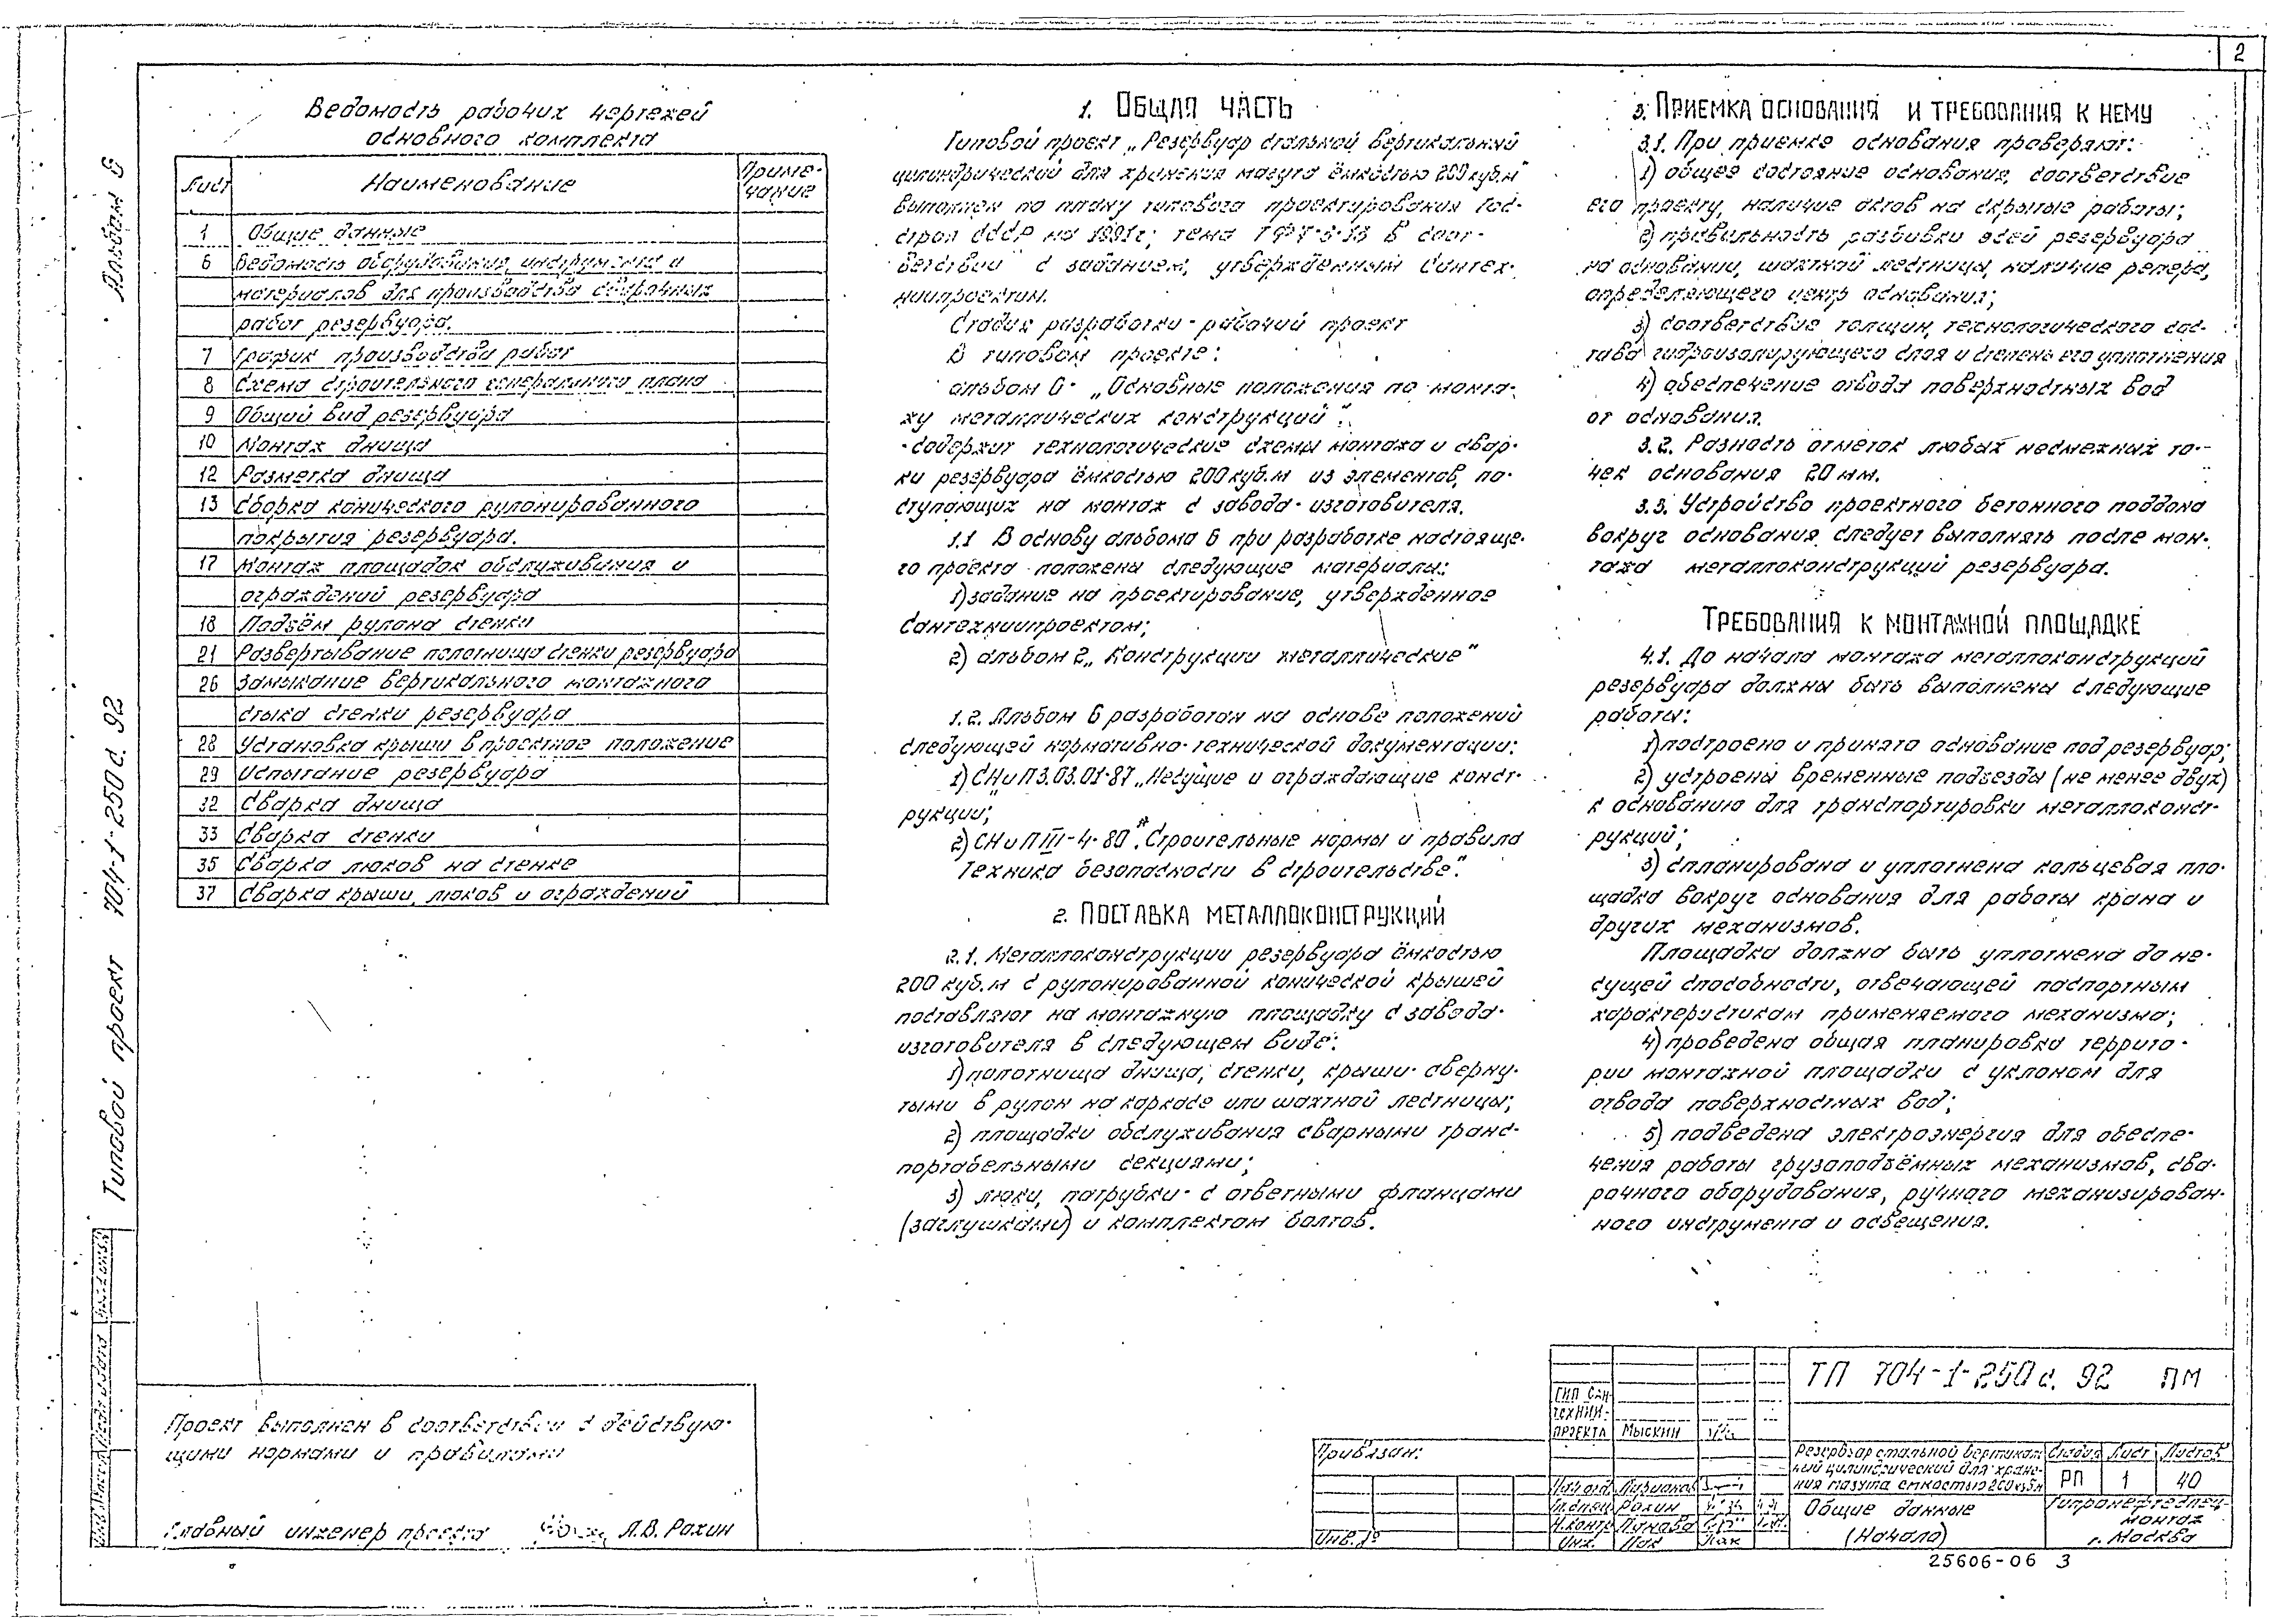 2
Альбом 6
Типовой проект 704-1-250 с. 92
Ведомость рабочих чертежей
основного комплекта
Лист Наименование Приме-
чание
1 Общие данные
6 Ведомость оборудования, инструмента и
материалов для производства сварочных
работ резервуара.
7 График производства работ
8 Схема строительного генерального плана
9 Общий вид резервуара
10 Монтаж днища
12 Разметка днища
13 Сборка конического рулонированного
покрытия резервуара.
17 Монтаж площадок обслуживания и
ограждений резервуара
18 Подъём рулона стенки
21 Развертывание полотнища стенки резервуара
26 Замыкание вертикального монтажного
стыка стенки резервуара
28 Установка крыши в проектное положение
29 Испытание резервуара
32 Сварка днища
33 Сварка стенки
35 Сварка люков на стенке
37 Сварка крыши, люков и ограждений
1. Общая часть
Типовой проект „Резервуар стальной вертикальный
цилиндрический для хранения мазута ёмкостью 200 куб.м"
выполнен по плану типового проектирования Гос-
строя СССР на 1991г; тема в соот-
ветствии с заданием, утвержденным Сантех-
ниипроектом.
Стадия разработки - рабочий проект
В типовом проекте:
альбом 6 - „Основные положения по монта-
жу металлических конструкций".
- содержит технологические схемы монтажа и свар-
ки резервуара ёмкостью 200 куб.м из элементов, по-
ступающих на монтаж с завода-изготовителя.
1.1 В основу альбома 6 при разработке настояще-
го проекта положены следующие материалы:
1) задание на проектирование, утвержденное
Сантехниипроектом;
2) альбом 2 „Конструкции металлические"
1.2. Альбом 6 разработан на основе положений
следующей нормативно-технической документации:
1) СНиП 3.03.01-87 „Несущие и ограждающие конст-
рукции;
2) СНиП III-4-80* „Строительные нормы и правила
Техника безопасности в строительстве".
2. Поставка металлоконструкций
2.1. Металлоконструкции резервуара ёмкостью
200 куб.м с рулонированной конической крышей
поставляют на монтажную площадку с завода-
изготовителя в следующем виде:
1) полотнища днища, стенки, крыши - сверну-
тыми в рулон на каркасе или шахтной лестницы;
2) площадки обслуживания сварными транс-
портабельными секциями;
3) люки, патрубки - с ответными фланцами
(заглушками) и комплектом болтов.
3. Приемка основания и требования к нему
3.1. При приемке основания проверяют:
1) общее состояние основания, соответствие
его проекту, наличие актов на скрытые работы;
2) правильность разбивки осей резервуара
на основании, шахтной лестницы, наличие репера,
определяющего центр основания;
3) соответствие толщин, технологического сос-
тава гидроизолирующего слоя и степень его уплотнения
4) обеспечение отвода поверхностных вод
от основания.
3.2. Разность отметок любых несмежных то-
чек основания 20 мм.
3.3. Устройство проектного бетонного поддона
вокруг основания следует выполнять после мон-
тажа металлоконструкций резервуара.
Требования к монтажной площадке
4.1. До начала монтажа металлоконструкций
резервуара должны быть выполнены следующие
работы:
1) построено и принято основание под резервуар;
2) устроены временные подъезды (не менее двух)
к основанию для транспортировки металлоконст-
рукций;
3) спланирована и уплотнена кольцевая пло-
щадка вокруг основания для работы крана и
других механизмов.
Площадка должна быть уплотнена до не-
сущей способности, отвечающей паспортным
характеристикам применяемого механизма;
4) проведена общая планировка террито-
рии монтажной площадки с уклоном для
отвода поверхностных вод;
5) подведена электроэнергия для обеспе-
чения работы грузоподъёмных механизмов, сва-
рочного оборудования, ручного механизирован-
ного инструмента и освещения.
Проект выполнен в соответствии с действую-
щими нормами и правилами
Главный инженер проекта А.В. Рахин
Привязан:
Инв. №
ГИП Сан-
технии-
проекта Мыскин
Нач. отд.
Гл. спец. Рахин
Н. контр.
Инж. Пак Пак
ТП 704-1-250 с. 92 ПМ
Резервуар стальной вертикаль-
ный цилиндрический для хране-
ния мазута емкостью 200 куб.м
Стадия Лист Листов
РП 1 40
Общие данные
(Начало)
Гипронефтеспец-
монтаж
г. Москва
25606-06 3